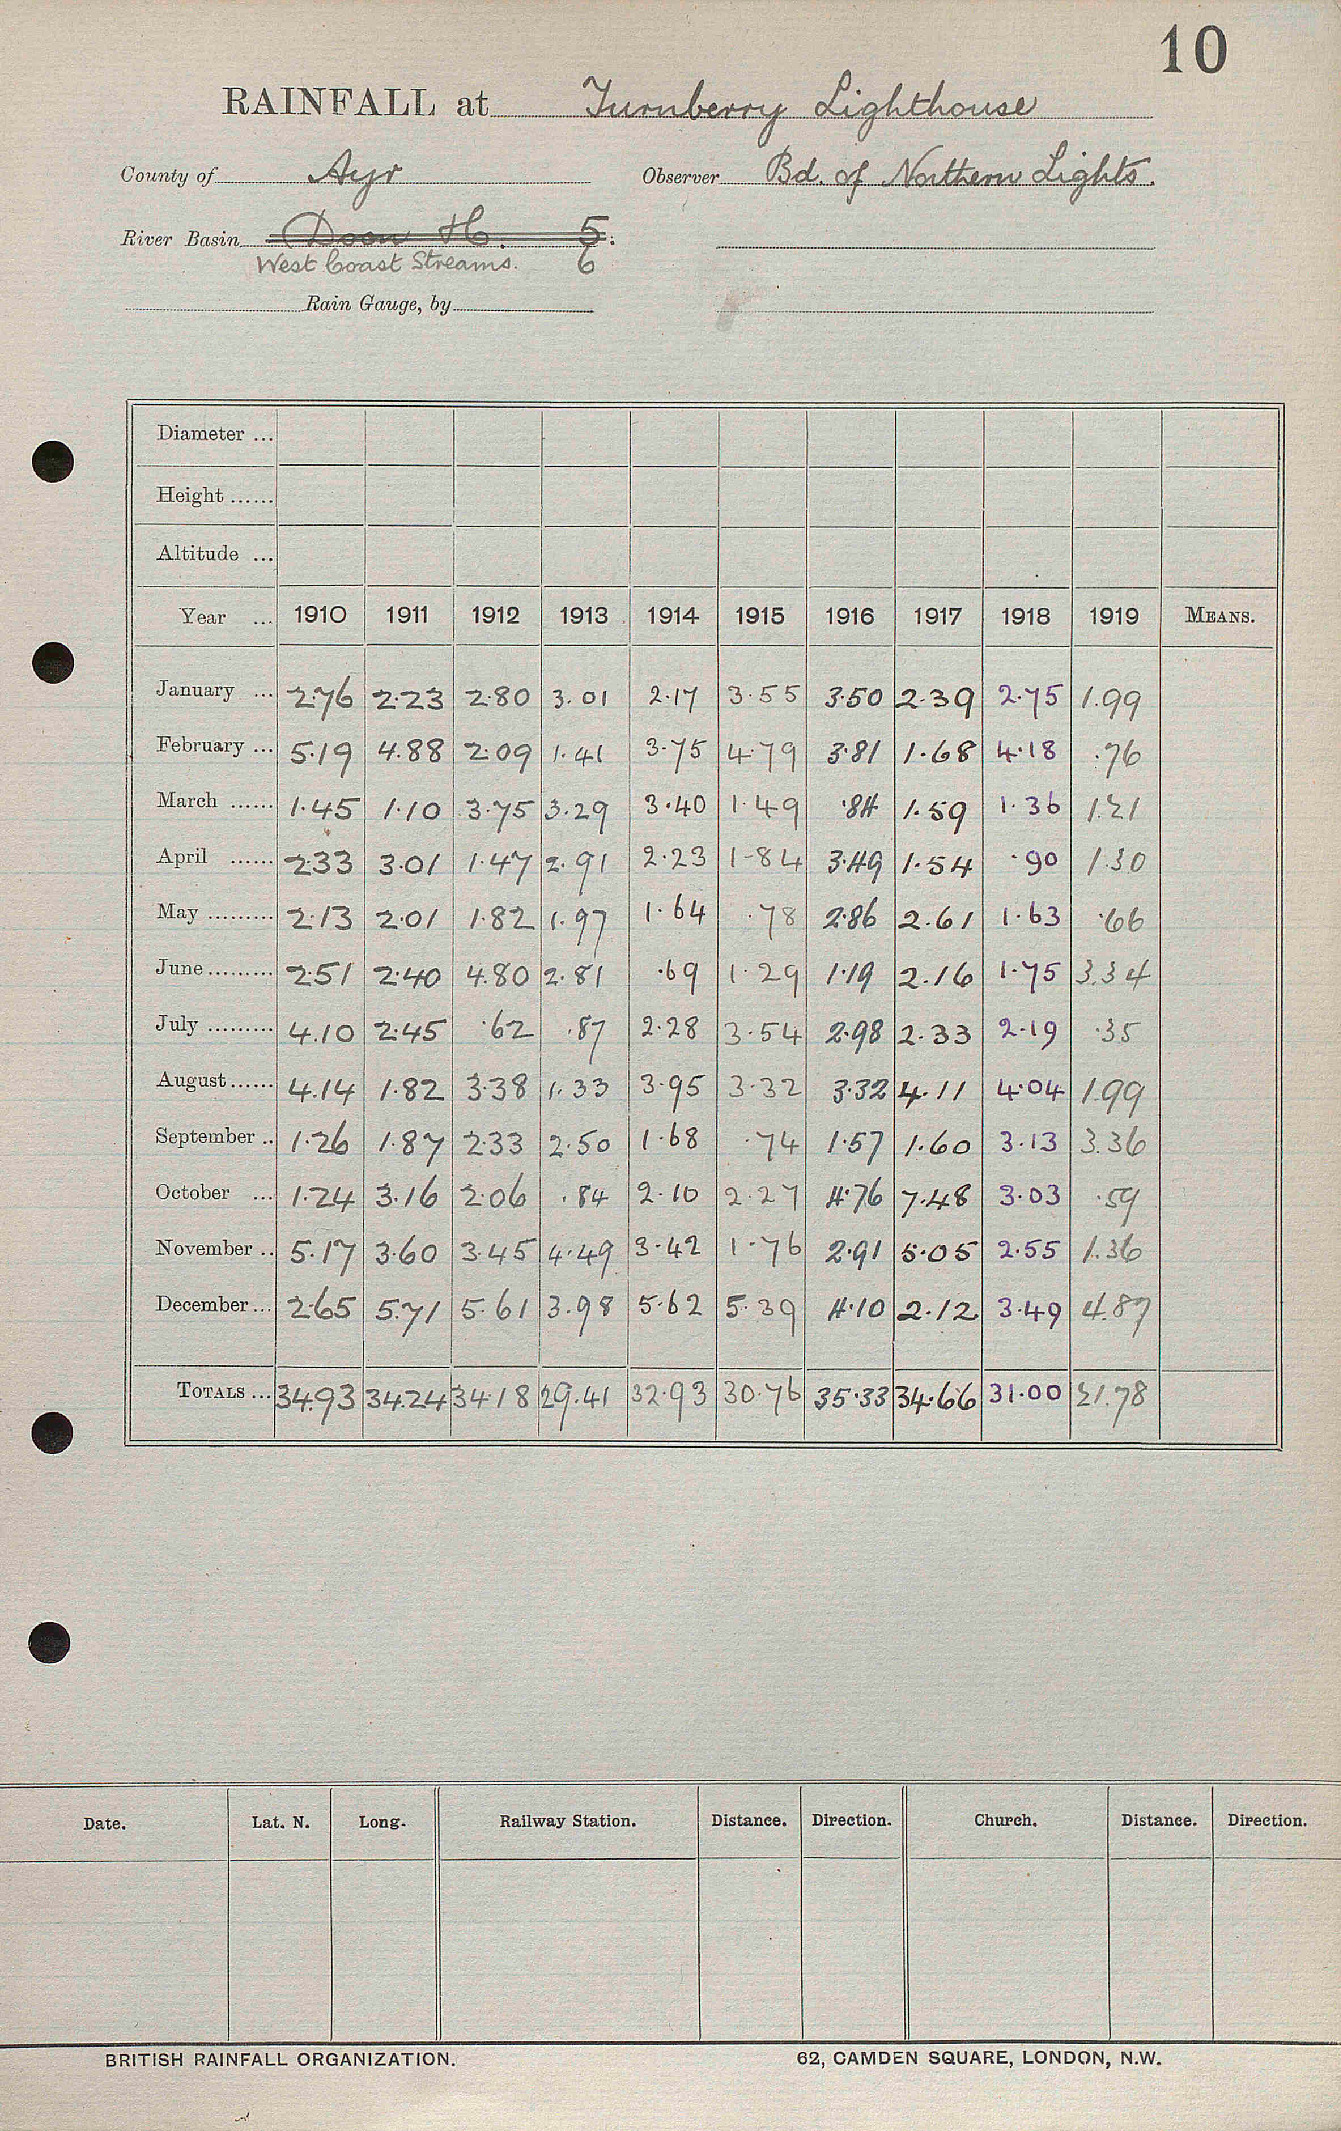 10
RAINFALL at Turnberry Lighthouse
County of Ayr Observer Bd. of Northern Lights.
River Basin Doon H. 5.
West Coast Streams. 6
Rain Gauge, by
Diameter ...
Height ......
Altitude ...
Year ... 1910 1911 1912 1913 1914 1915 1916 1917 1918 1919 MEANS.
January ... 2.76 2.23 2.80 3.01 2.17 3.55 3.50 2.39 2.75 1.99
February ... 5.19 4.88 2.09 1.41 3.75 4.79 3.81 1.68 4.18 .76
March ...... 1.45 1.10 3.75 3.29 3.40 1.49 .84 1.59 1.36 1.21
April ...... 2.33 3.01 1.47 2.91 2.23 1.84 3.49 1.54 .90 1.30
May ......... 2.13 2.01 1.82 1.97 1.64 .78 2.86 2.61 1.63 .66
June ......... 2.51 2.40 4.80 2.81 .69 1.29 1.19 2.16 1.75 3.34
July ......... 4.10 2.45 .62 .87 2.28 3.54 2.98 2.33 2.19 .35
August ...... 4.14 1.82 3.38 1.33 3.95 3.32 3.32 4.11 4.04 1.99
September .. 1.26 1.87 2.33 2.50 1.68 .74 1.57 1.60 3.13 3.36
October ... 1.24 3.16 2.06 .84 2.10 2.27 4.76 7.48 3.03 .59
November .. 5.17 3.60 3.45 4.49 3.42 1.76 2.91 5.05 2.55 1.36
December ... 2.65 5.71 5.61 3.98 5.62 5.39 4.10 2.12 3.49 4.87
TOTALS ... 34.93 34.24 34.18 29.41 32.93 30.76 35.33 34.66 31.00 21.78
Date. Lat. N. Long. Railway Station. Distance. Direction. Church. Distance. Direction.
BRITISH RAINFALL ORGANIZATION. 62, CAMDEN SQUARE, LONDON, N.W.